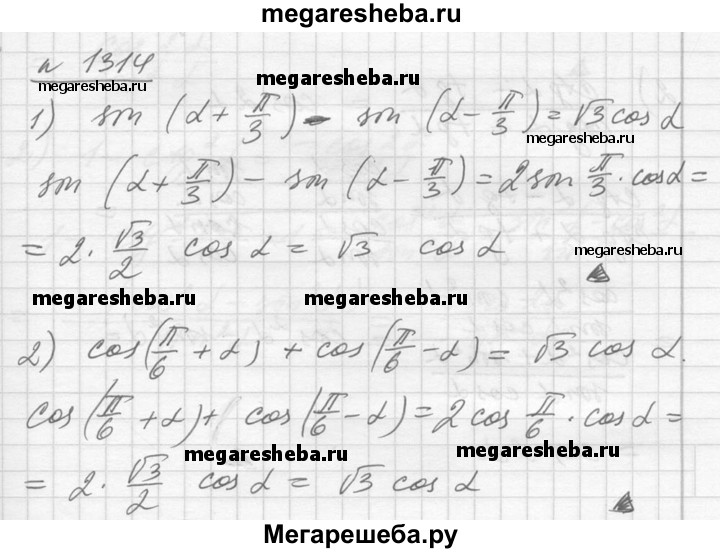 megaresheba.ru
№ 1314
megaresheba.ru
megaresheba.ru
1) sin (α + π/3) - sin (α - π/3) = √3 cos α
megaresheba.ru
sin (α + π/3) - sin (α - π/3) = 2 sin π/3 · cos α =
= 2 · √3/2 cos α = √3 cos α
megaresheba.ru
megaresheba.ru
megaresheba.ru
2) cos (π/6 + α) + cos (π/6 - α) = √3 cos α.
cos (π/6 + α) + cos (π/6 - α) = 2 cos π/6 · cos α =
megaresheba.ru
megaresheba.ru
= 2 · √3/2 cos α = √3 cos α
Мегарешеба.ру